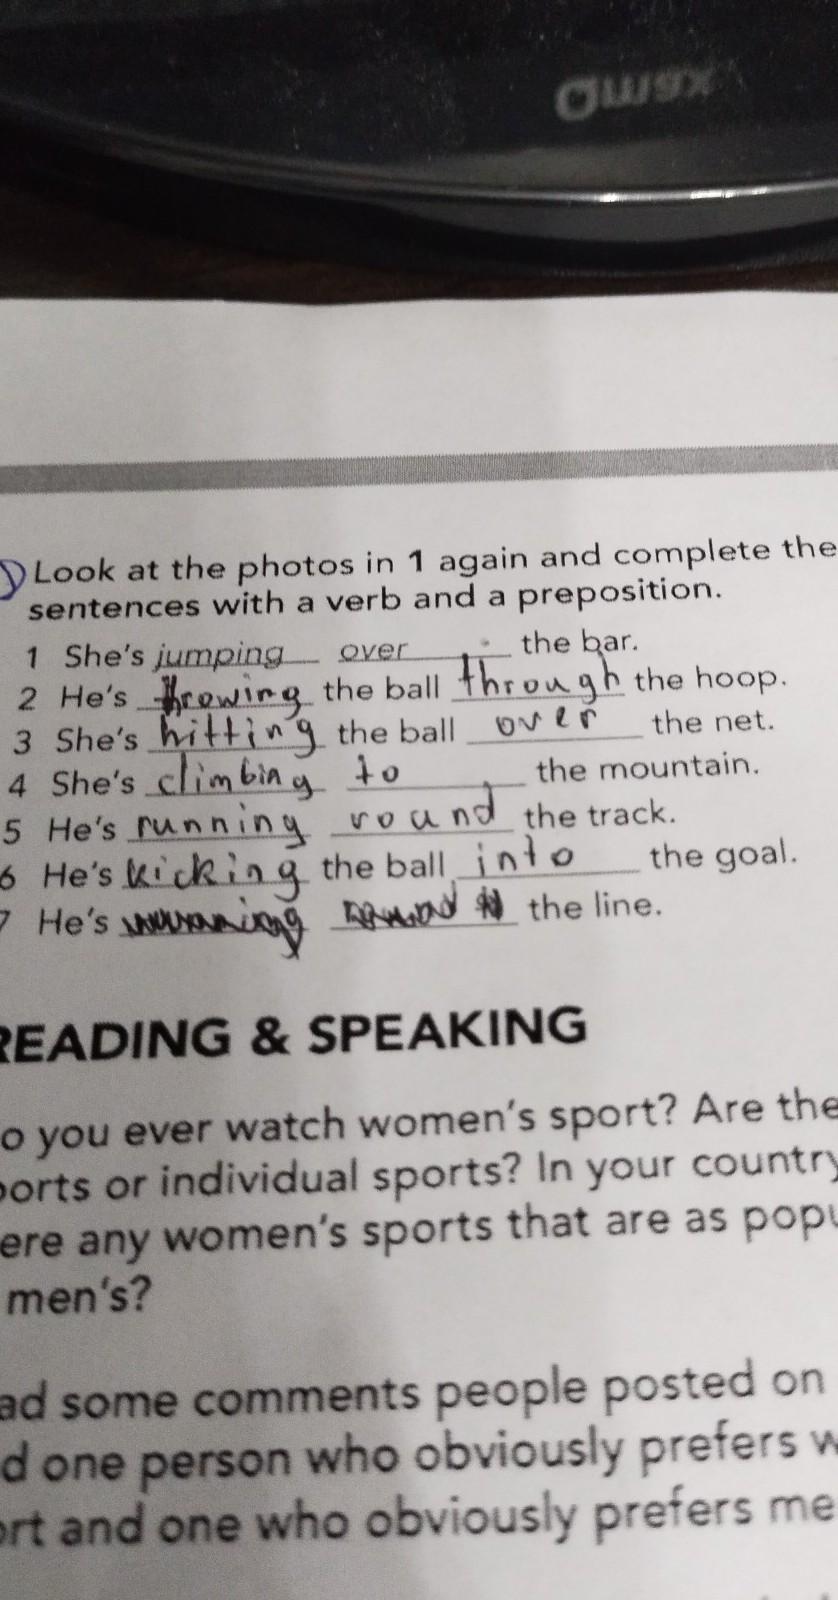 Qmax
Look at the photos in 1 again and complete the
sentences with a verb and a preposition.
1 She's jumping over the bar.
2 He's throwing the ball through the hoop.
3 She's hitting the ball over the net.
4 She's climbing to the mountain.
5 He's running round the track.
6 He's kicking the ball into the goal.
7 He's the line.
READING & SPEAKING
o you ever watch women's sport? Are the
ports or individual sports? In your country
ere any women's sports that are as popu
men's?
ad some comments people posted on
d one person who obviously prefers w
ort and one who obviously prefers me